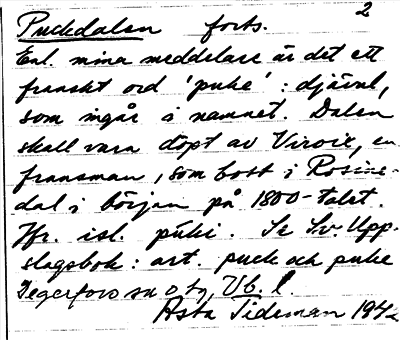 2
Puckdalen forts.
Enl. mina meddelare är det ett
franskt ord 'puke' : djävul,
som ingår i namnet. Dalen
skall vara döpt av Viroix, en
fransman, som bott i Rosine-
dal i början på 1800-talet.
Jfr. isl. púki. Se Sv. Upp-
slagsbok: art. puck och puke
Degerfors sn o tg, Vb. l.
Asta Tideman 194